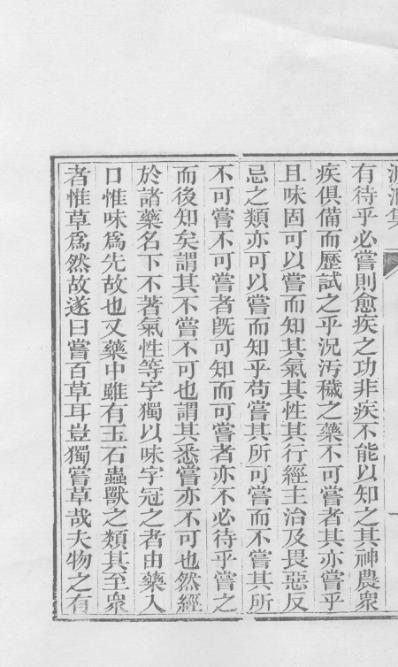 溯洄集
有待乎必嘗則愈疾之功非疾不能以知之其神農衆
疾俱備而歷試之乎況汚穢之藥不可嘗者其亦嘗乎
且味固可以嘗而知其氣其性其行經主治及畏惡反
忌之類亦可以嘗而知乎苟嘗其所可嘗而不嘗其所
不可嘗不可嘗者旣可知而可嘗者亦不必待乎嘗之
而後知矣謂其不嘗不可也謂其悉嘗亦不可也然經
於諸藥名下不著氣性等字獨以味字冠之者由藥入
口惟味爲先故也又藥中雖有玉石蟲獸之類其至衆
者惟草爲然故遂曰嘗百草耳豈獨嘗草哉夫物之有